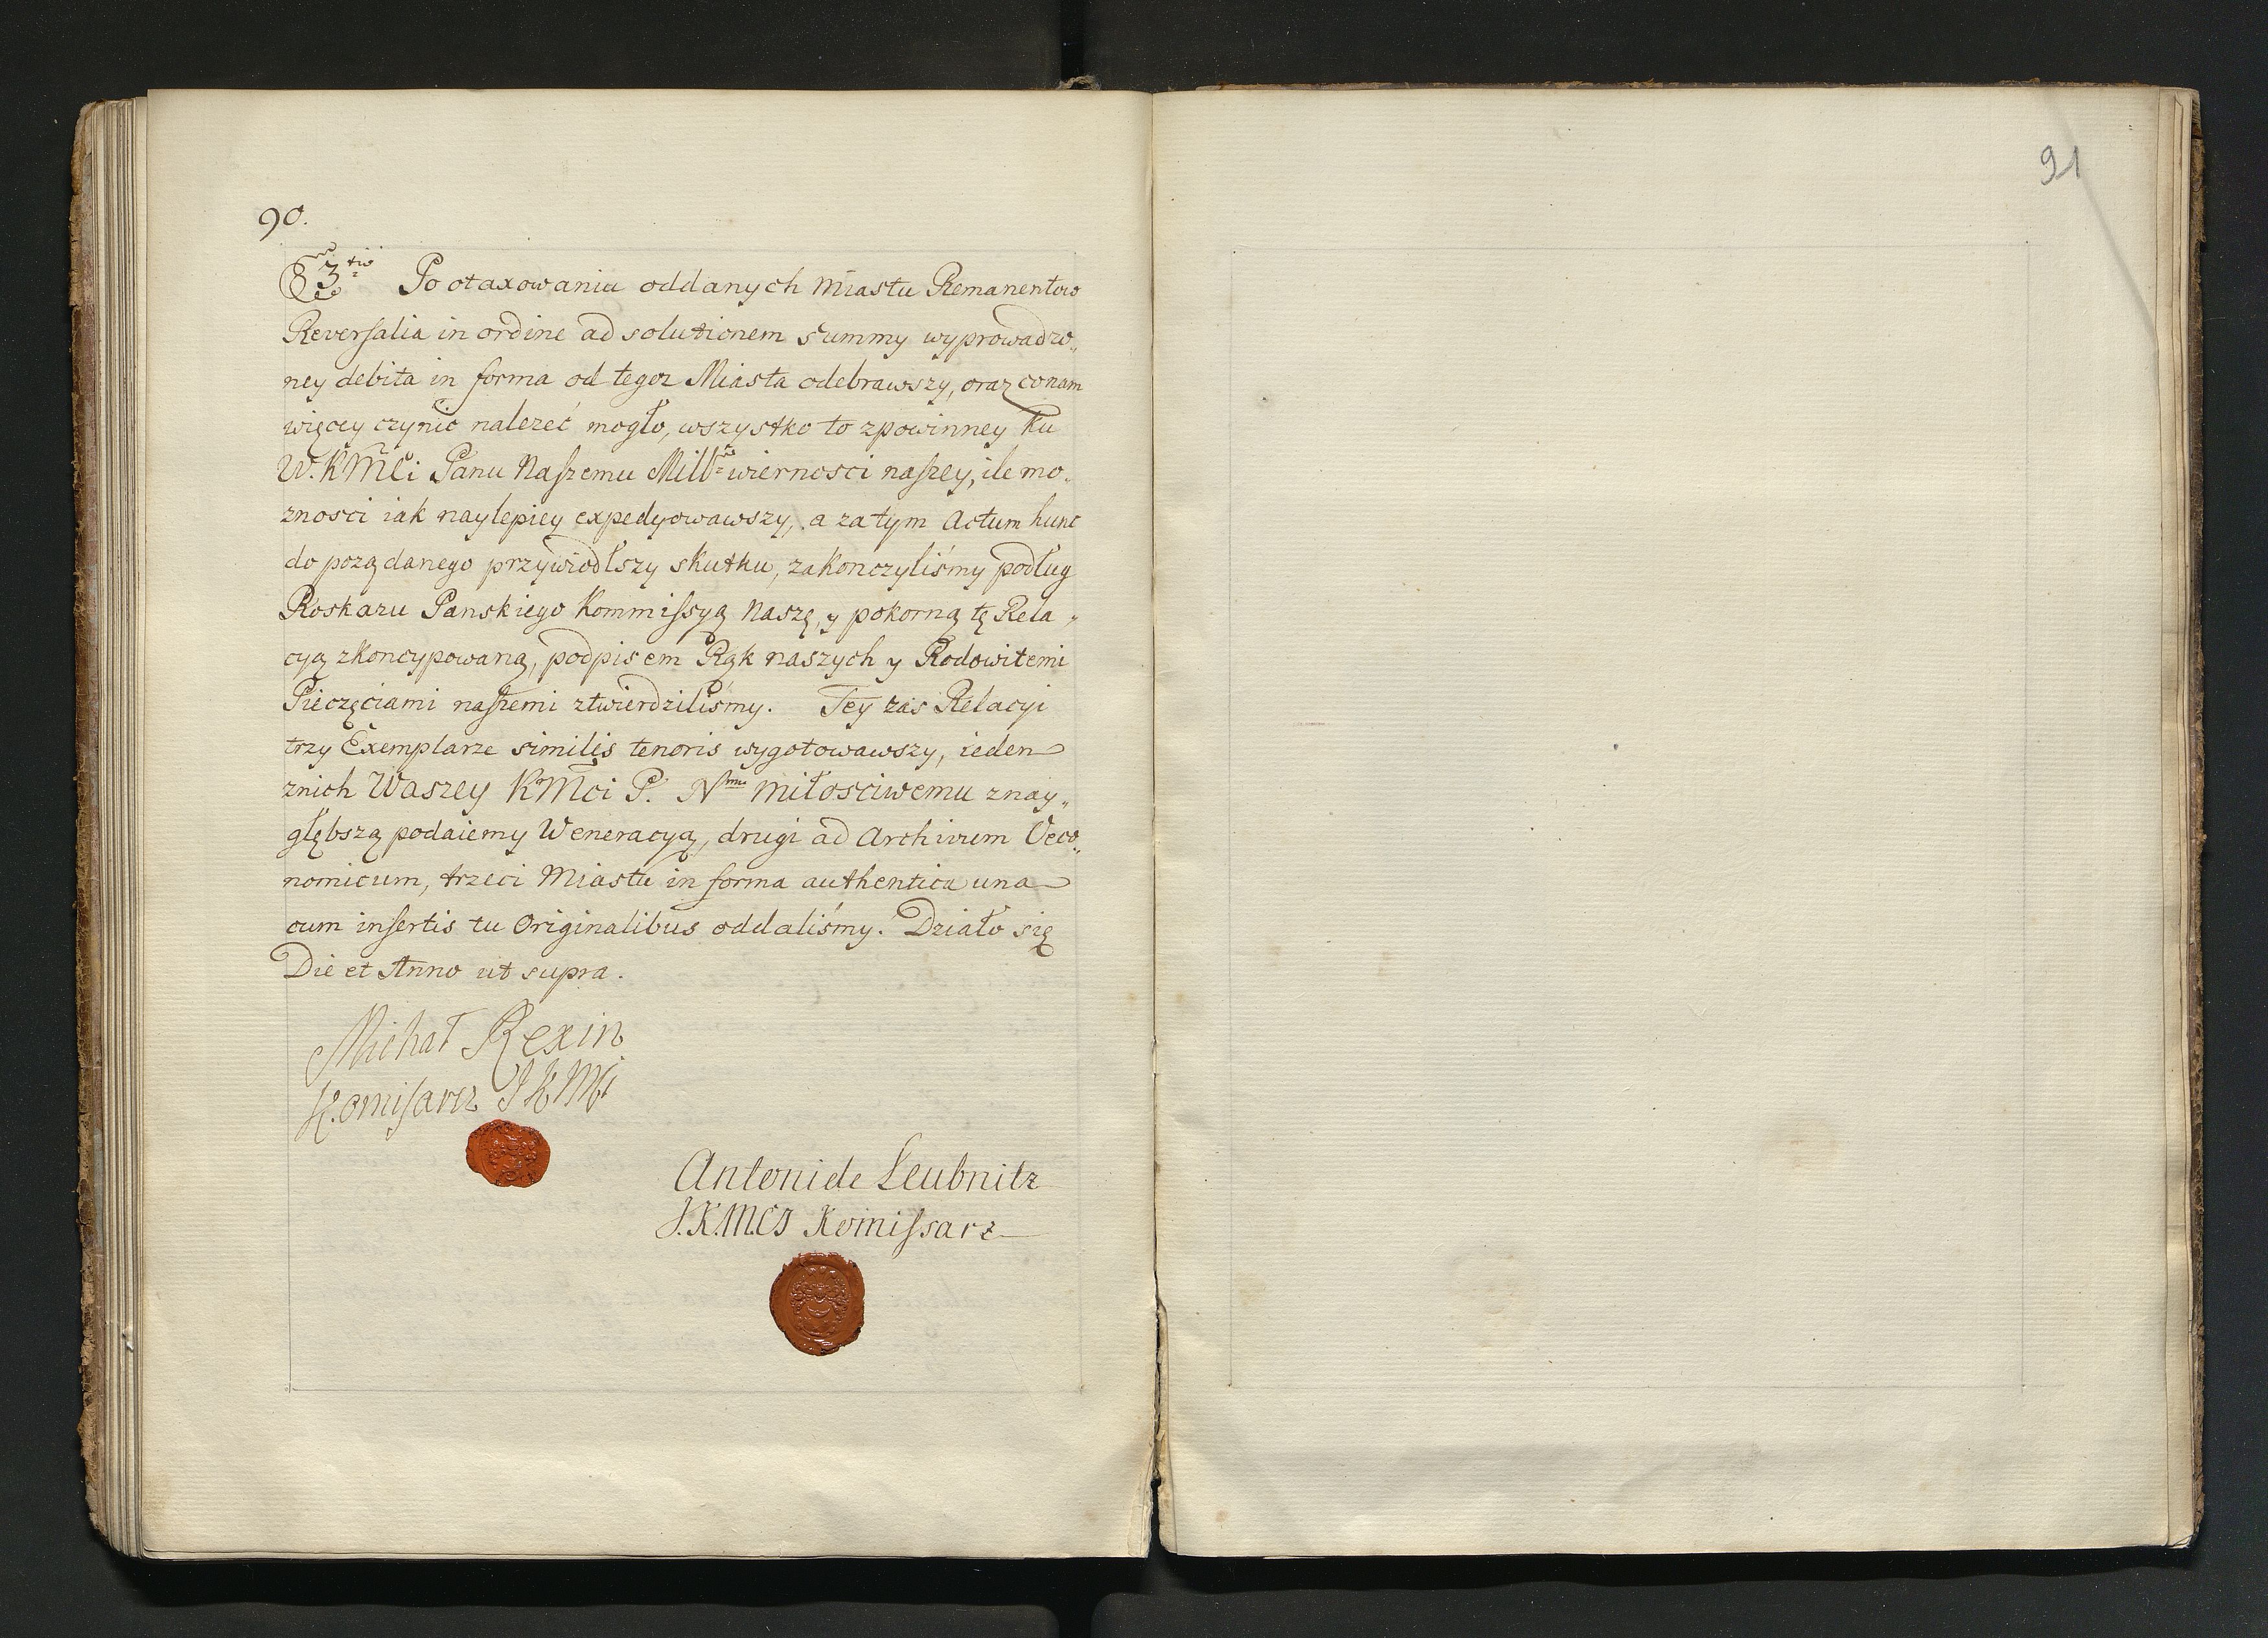 90.
§ 3tio Po otaxowaniu oddanych Miastu Remanentow
Reversalia in ordine ad solutionem summy wyprowadzo„
ney debita in forma od tegoz Miasta odebrawszy, oraz co nam
więcey czynić nalezeć mogło, wszystko to z powinney ku
W. KMCi Panu Naszemu Miłł: wiernosci naszey, ile mo„
znosci iak naylepiey expedyowawszy, a za tym Actum hunc
do pozządanego przywiodłszy skutku, zakonczyliśmy podług
Roskazu Panskiego Kommissyą Naszę, y pokorną tę Rela„
cyą zkoncypowaną, podpisem Rąk naszych y Rodowitemi
Pieczęciami naszemi ztwierdziliśmy. Tey zas Relacyi
trzy Exemplarze similis tenoris wygotowawszy, ieden
znich Waszey KMci P. Nmu miłosciwemu z nay„
głębszą podaiemy Weneracyą, drugi ad Archivum Oeco„
nomicum, trzeci Miastu in forma authentica una
cum insertis tu Originalibus oddaliśmy. Działo się
Die et Anno ut supra.
Michał Rexin
Komisarz JKMci
Antoni de Leubnitz
J.K.MCI Komissarz
91